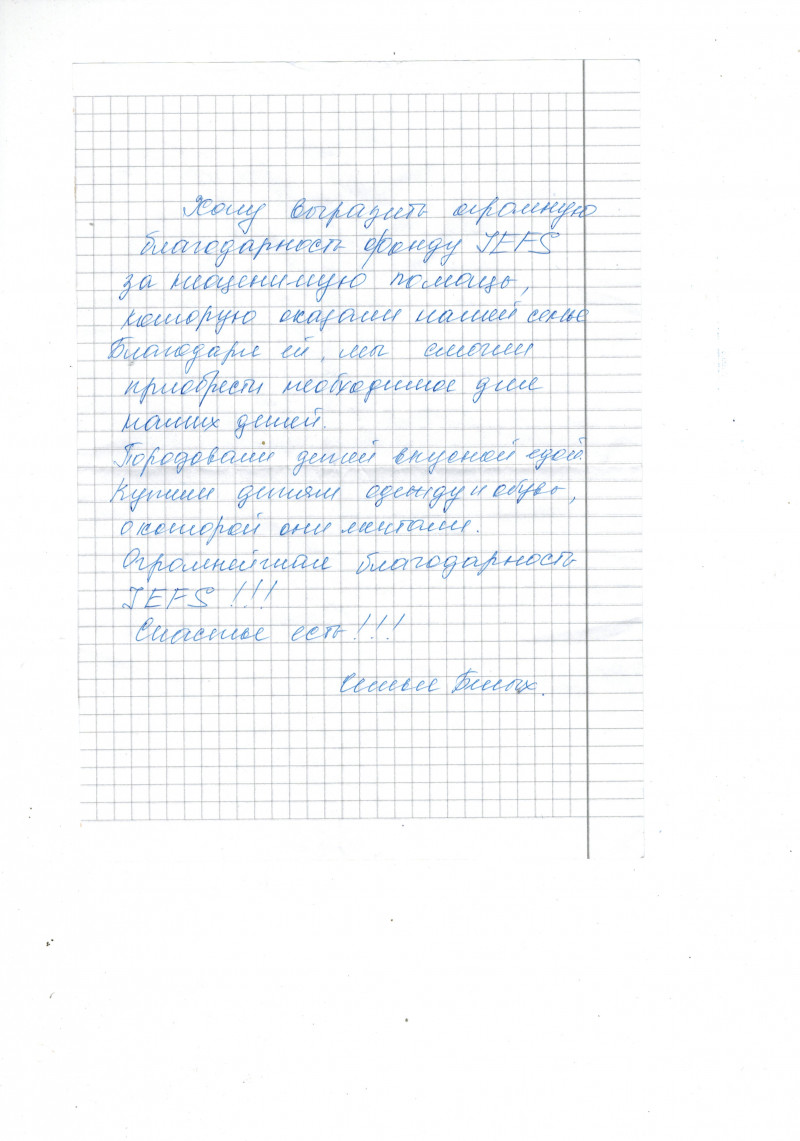 Хочу выразить огромную
благодарность фонду IEFS
за неоценимую помощь,
которую оказали нашей семье
Благодаря ей, мы смогли
приобрести необходимое для
наших детей.
Породовали детей вкусной едой.
Купили детям одежду и обувь,
о которой они мечтали.
Огромнейшая благодарность
IEFS !!!
Счастье есть!!!
Семья Белых.